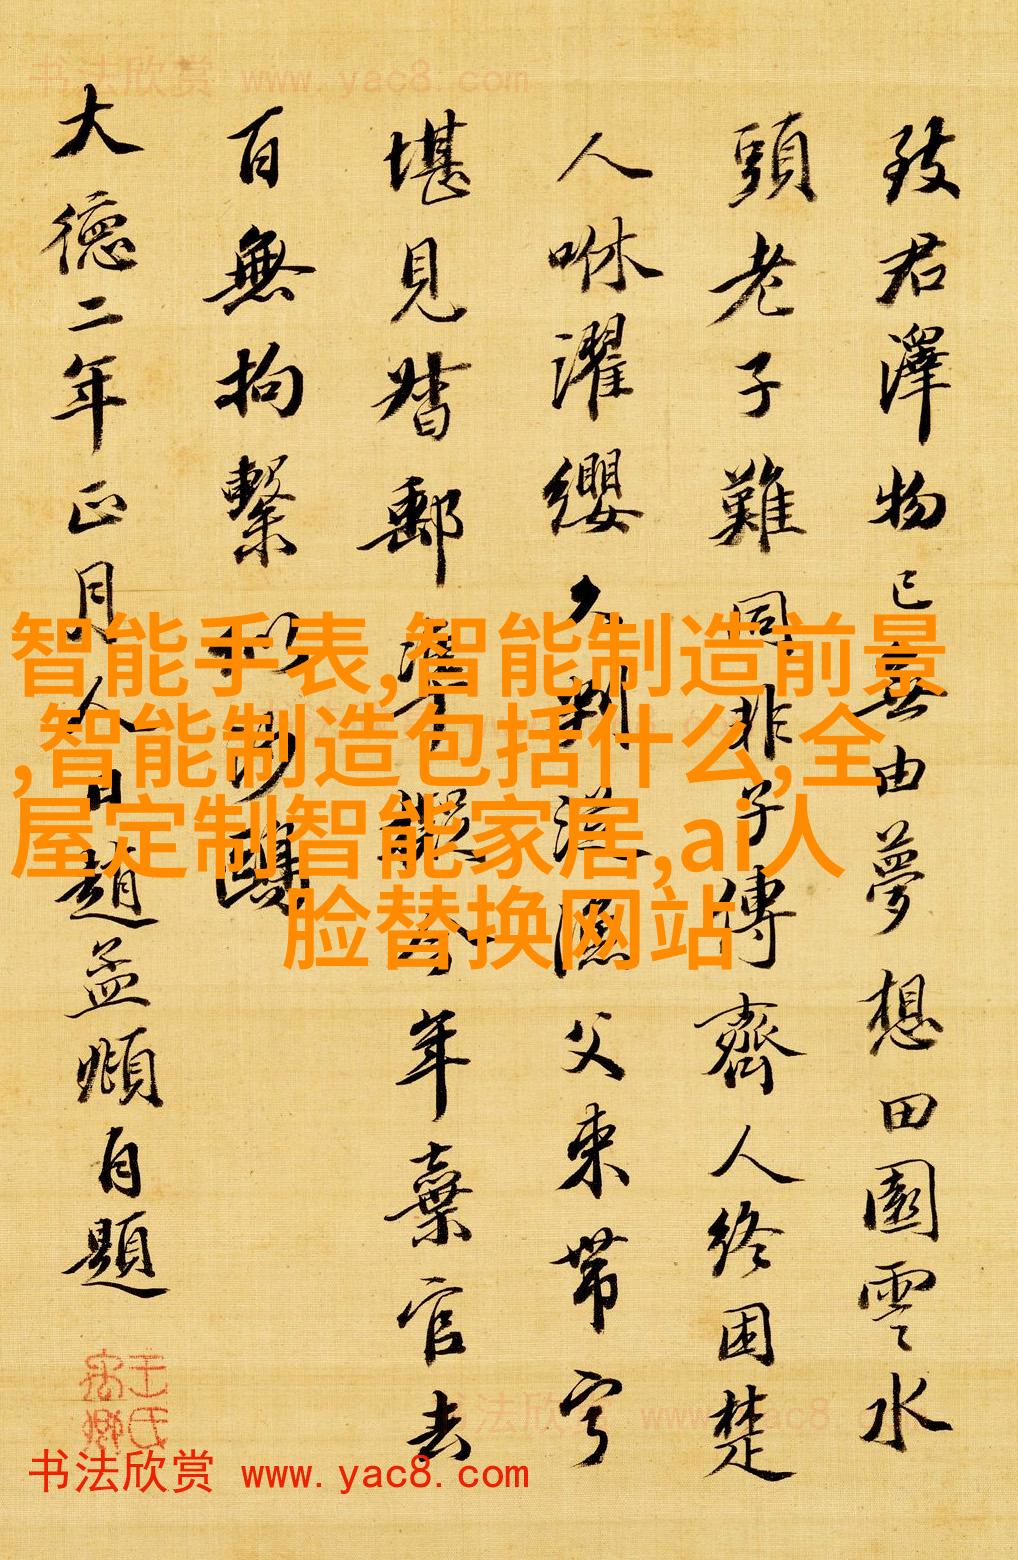 书法欣赏 www.yac8.com
致君澤物已無由夢想田園雲水
頭老子難同非子傳齊人終困楚
人咻濯纓久判從漁父束帶寧
堪見督郵準擬今年棄官去
百無拘繫似沙鷗
大德二年正月人日趙孟頫自題
智能手表,智能制造前景
,智能制造包括什么,全
屋定制智能家居,ai人
脸替换网站
书法欣赏 www.yac8.com
书法欣赏 www.yac8.com